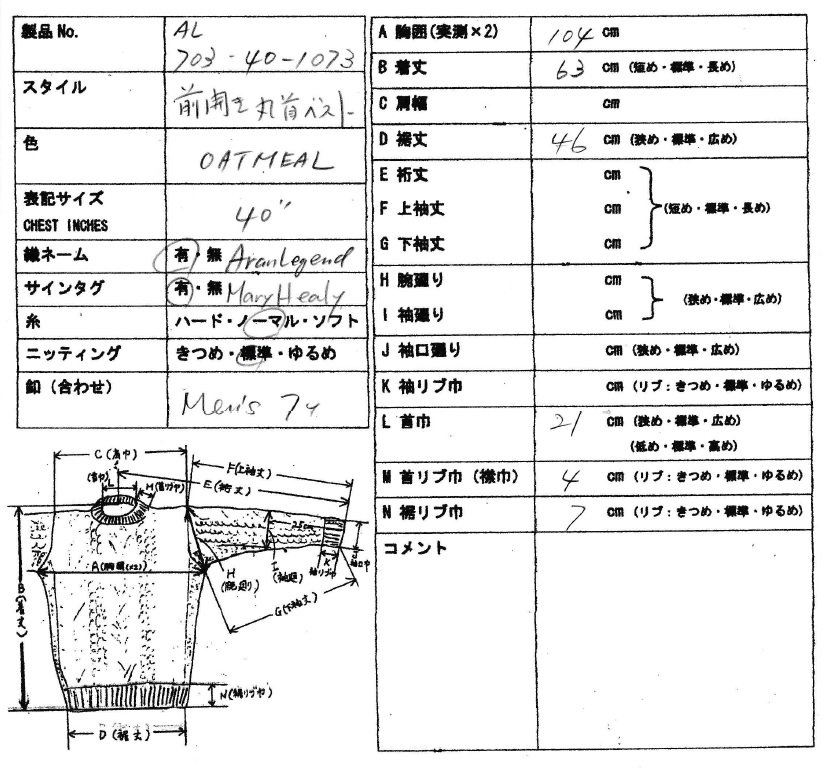 製品 No.
AL
703-40-1073
スタイル
前開き丸首ベスト
色
OATMEAL
表記サイズ
CHEST INCHES
40"
織ネーム
有・無 AranLegend
サインタグ
有・無 Mary Healy
糸
ハード・ノーマル・ソフト
ニッティング
きつめ・標準・ゆるめ
釦（合わせ）
Men's 7ヶ
A 胸囲(実測×2)
104 cm
B 着丈
63 cm (短め・標準・長め)
C 肩幅
cm
D 裾丈
46 cm (狭め・標準・広め)
E 裄丈
cm
F 上袖丈
cm (短め・標準・長め)
G 下袖丈
cm
H 腕廻り
cm
(狭め・標準・広め)
I 袖廻り
cm
J 袖口廻り
cm (狭め・標準・広め)
K 袖リブ巾
cm (リブ：きつめ・標準・ゆるめ)
L 首巾
21 cm (狭め・標準・広め)
(低め・標準・高め)
M 首リブ巾（襟巾）
4 cm (リブ：きつめ・標準・ゆるめ)
N 裾リブ巾
7 cm (リブ：きつめ・標準・ゆるめ)
コメント
C (肩巾)
F(上袖丈)
E(裄丈)
L
(首巾)
M(首リブ巾)
25cm
A(胸囲(×2))
B(着丈)
H
(腕廻り)
I
(袖廻)
K
袖リブ巾
J
袖口巾
G(下袖丈)
N(裾リブ巾)
D (裾丈)